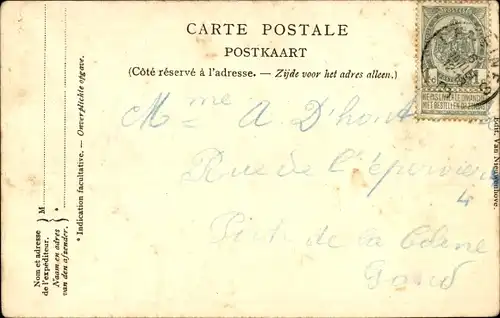 CARTE POSTALE
POSTKAART
(Côté réservé à l'adresse. — Zijde voor het adres alleen.)
Mme A D'hont
Rue de l'épervier
4
de la
Gand
* Indication facultative. — Onverplichte opgave.
M
Nom et adresse
de l'expéditeur.
Naam en adres
van den afzender.
Edit. Van
NE PAS LIVRER LE DIMANCHE
NIET BESTELLEN OP ZONDAG